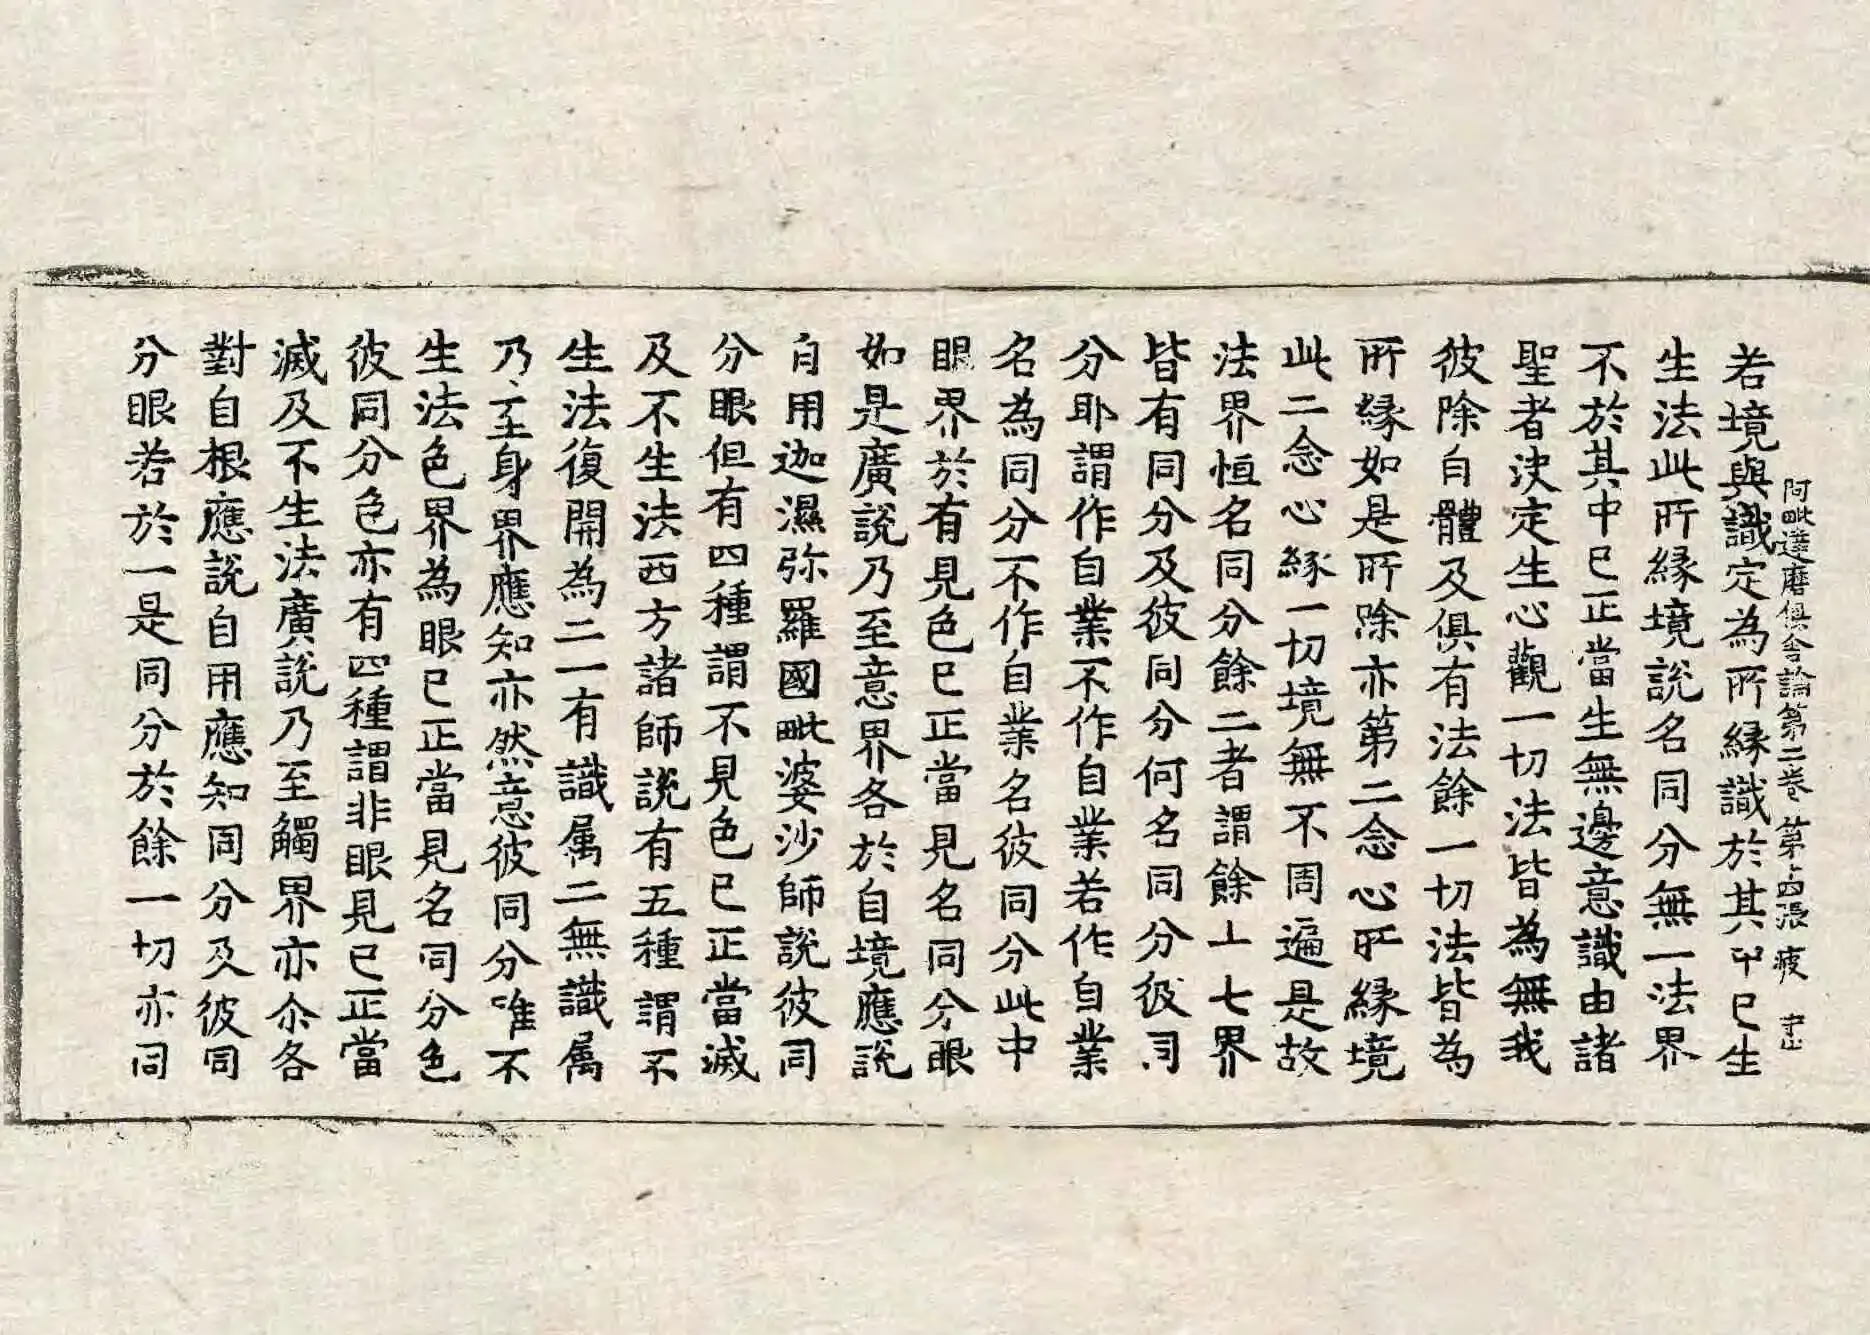 阿毗達磨俱舍論第二卷 第四張 疲
若境與識定為所緣識於其中已生
生法此所緣境說名同分無一法界
不於其中已正當生無邊意識由諸
聖者決定生心觀一切法皆為無我
彼除自體及俱有法餘一切法皆為
所緣如是所除亦第二念心所緣境
此二念心緣一切境無不周遍是故
法界恒名同分餘二者謂餘十七界
皆有同分及彼同分何名同分彼同
分耶謂作自業不作自業若作自業
名為同分不作自業名彼同分此中
眼界於有見色已正當見名同分眼
如是廣說乃至意界各於自境應說
自用迦濕弥羅國毗婆沙師說彼同
分眼但有四種謂不見色已正當滅
及不生法西方諸師說有五種謂不
生法復開為二一有識属二無識属
乃至身界應知亦然意彼同分唯不
生法色界為眼已正當見名同分色
彼同分色亦有四種謂非眼見已正當
滅及不生法廣說乃至觸界亦尒各
對自根應說自用應知同分及彼同
分眼若於一是同分於餘一切亦同